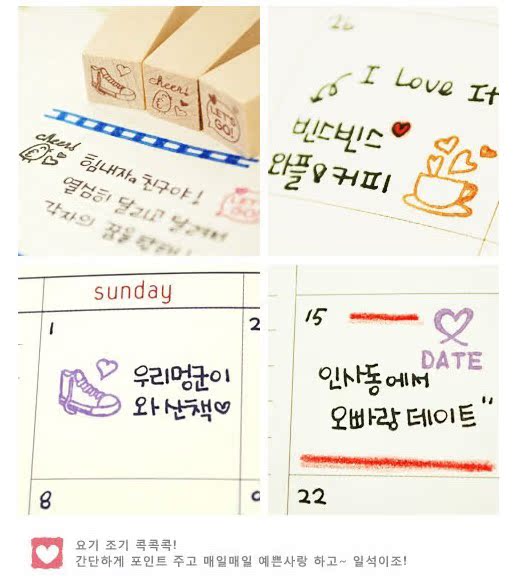 cheer!
LET'S GO!
cheer!
힘내자 친구야!
열심히 달리고 달려서
LET'S GO!
각자의 꿈을
I Love It
빈스빈스
와플&커피
sunday
1
2
우리멍군이
와 산책♡
8
15
DATE
인사동에서
오빠랑 데이트"
22
요기 조기 콕콕콕!
간단하게 포인트 주고 매일매일 예쁜사랑 하고~ 일석이조!